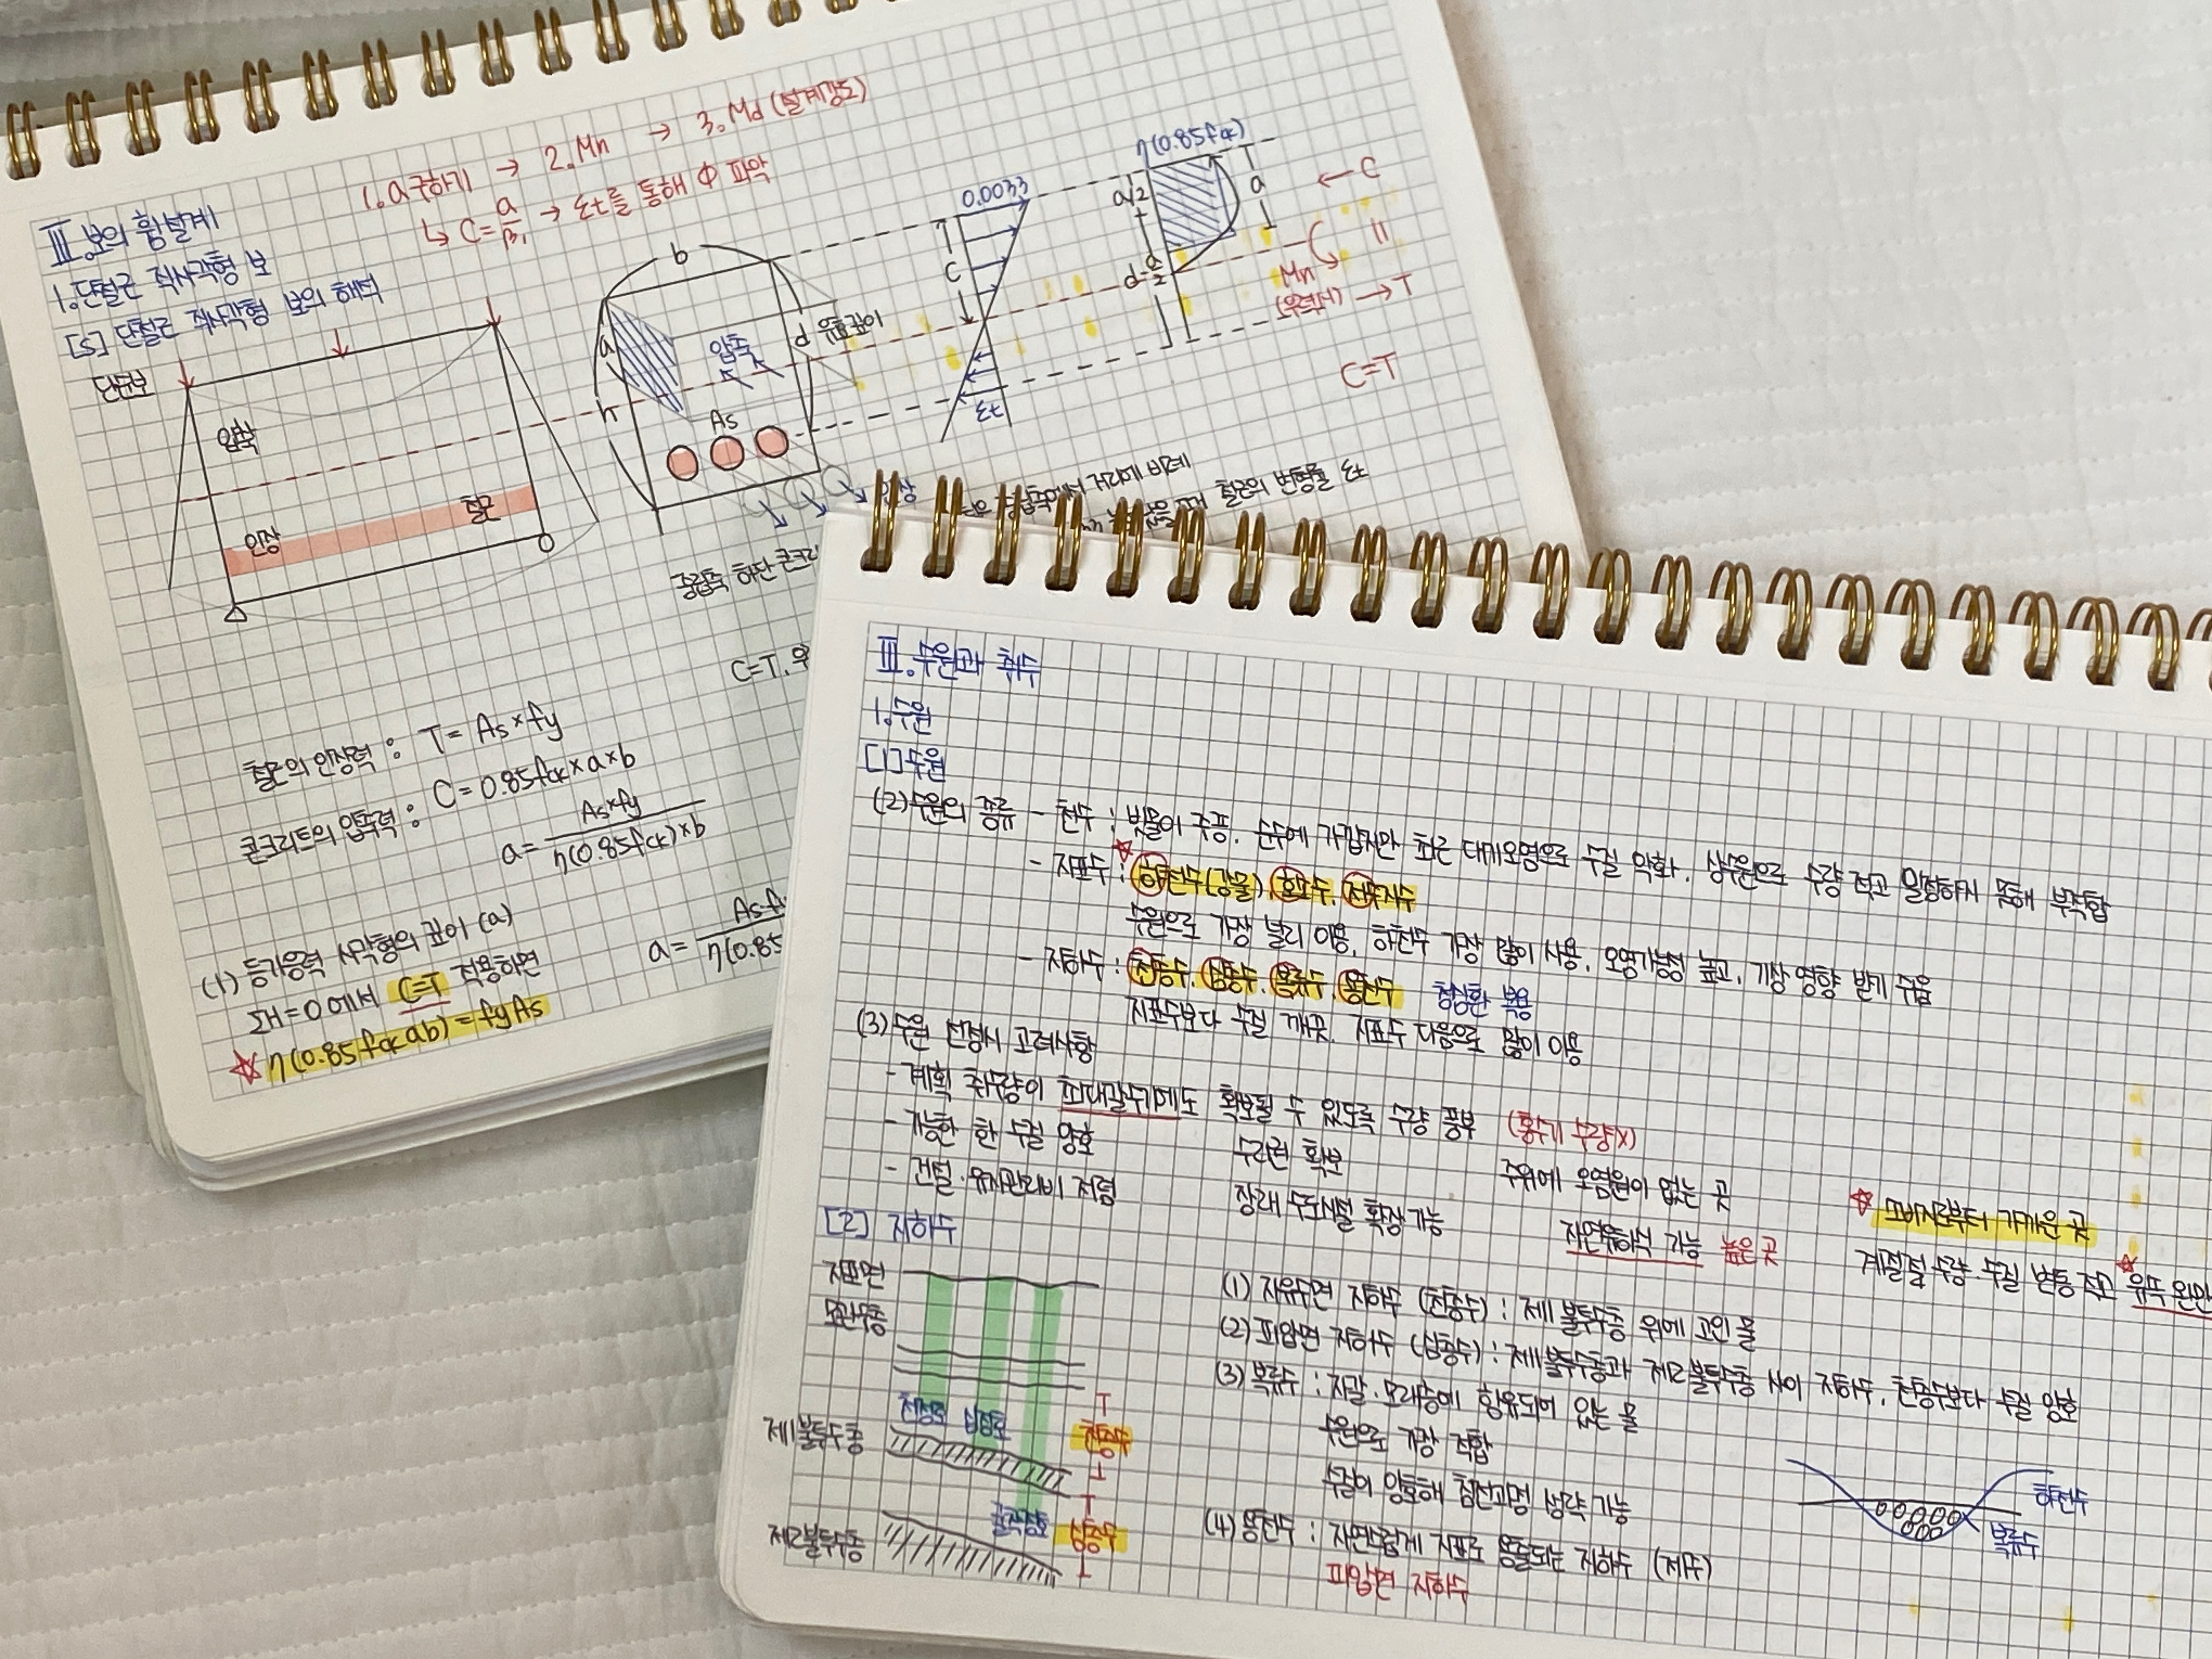 1. a구하기 → 2. Mn → 3. Md (설계강도)
↳ C = a/β₁ → εt를 통해 Φ 파악
Ⅲ. 보의 휨설계
1. 단철근 직사각형 보
[5] 단철근 직사각형 보의 해석
단순보
압축
인장
철근
b
a
h
압축
d 유효깊이
As
인장
0.0033
C
εt
η(0.85fck)
a/2
a
← C
d-a/2
Mn
(우력모멘트) → T
C=T
중립축에서 거리에 비례
철근의 변형률 εt
중립축 하단 콘크리
C=T.
철근의 인장력 : T = As×fy
콘크리트의 압축력 : C = 0.85fck×a×b
a = As×fy / η(0.85fck)×b
(1) 등가응력 사각형의 깊이 (a)
ΣH=0 에서 C=T 적용하면
☆ η(0.85fck ab) = fyAs
a = As·f / η(0.85
Ⅲ. 수원과 취수
1. 수원
[1] 수원
(2) 수원의 종류 - 천수 : 빗물이 주풍. 순수에 가깝지만 최근 대기오염으로 수질 악화. 상수원으로 수량 적고 일정하지 못해 부적합
- 지표수 : ☆ 하천수(강물) 호소수. 저수지수
수원으로 가장 널리 이용. 하천수 가장 많이 사용. 오염가능성 높고. 기상 영향 받기 쉬움
- 지하수 : 천층수. 심층수. 복류수. 용천수 천심환 복용
지표수보다 수질 깨끗. 지표수 다음으로 많이 이용
(3) 수원 선정시 고려사항
- 계획 취수량이 최대갈수기에도 확보될 수 있도록 수량 풍부 (홍수기 수량X)
- 가능한 한 수질 양호 수리권 확보 주위에 오염원이 없는 곳 ☆ 소비지로부터 가까운 곳
- 건설·유지관리비 저렴 장래 수도시설 확장 가능 자연유하식 가능 높은 곳 계절적 수량·수질 변동 적고 ☆ 유속 완만
[2] 지하수
지표면
모관수층
천정호 심정호
제1불투수층
천층수
굴착정호
심층수
제2불투수층
(1) 자유수면 지하수 (천층수) : 제1 불투수층 위에 고인 물
(2) 피압면 지하수 (심층수) : 제1불투수층과 제2불투수층 사이 지하수. 천층수보다 수질 양호
(3) 복류수 : 자갈·모래층에 함유되어 있는 물
수원으로 가장 적합
수질이 양호해 침전과정 생략 가능
(4) 용천수 : 자연스럽게 지표로 용출되는 지하수 (제주)
피압면 지하수
하천수
복류수